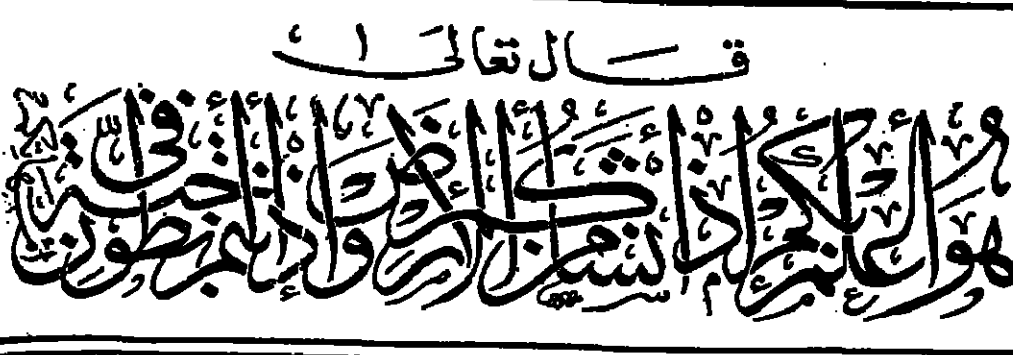 قال تعالى :
هو أعلم بكم إذ أنشأكم من الأرض وإذ أنتم أجنة في بطون